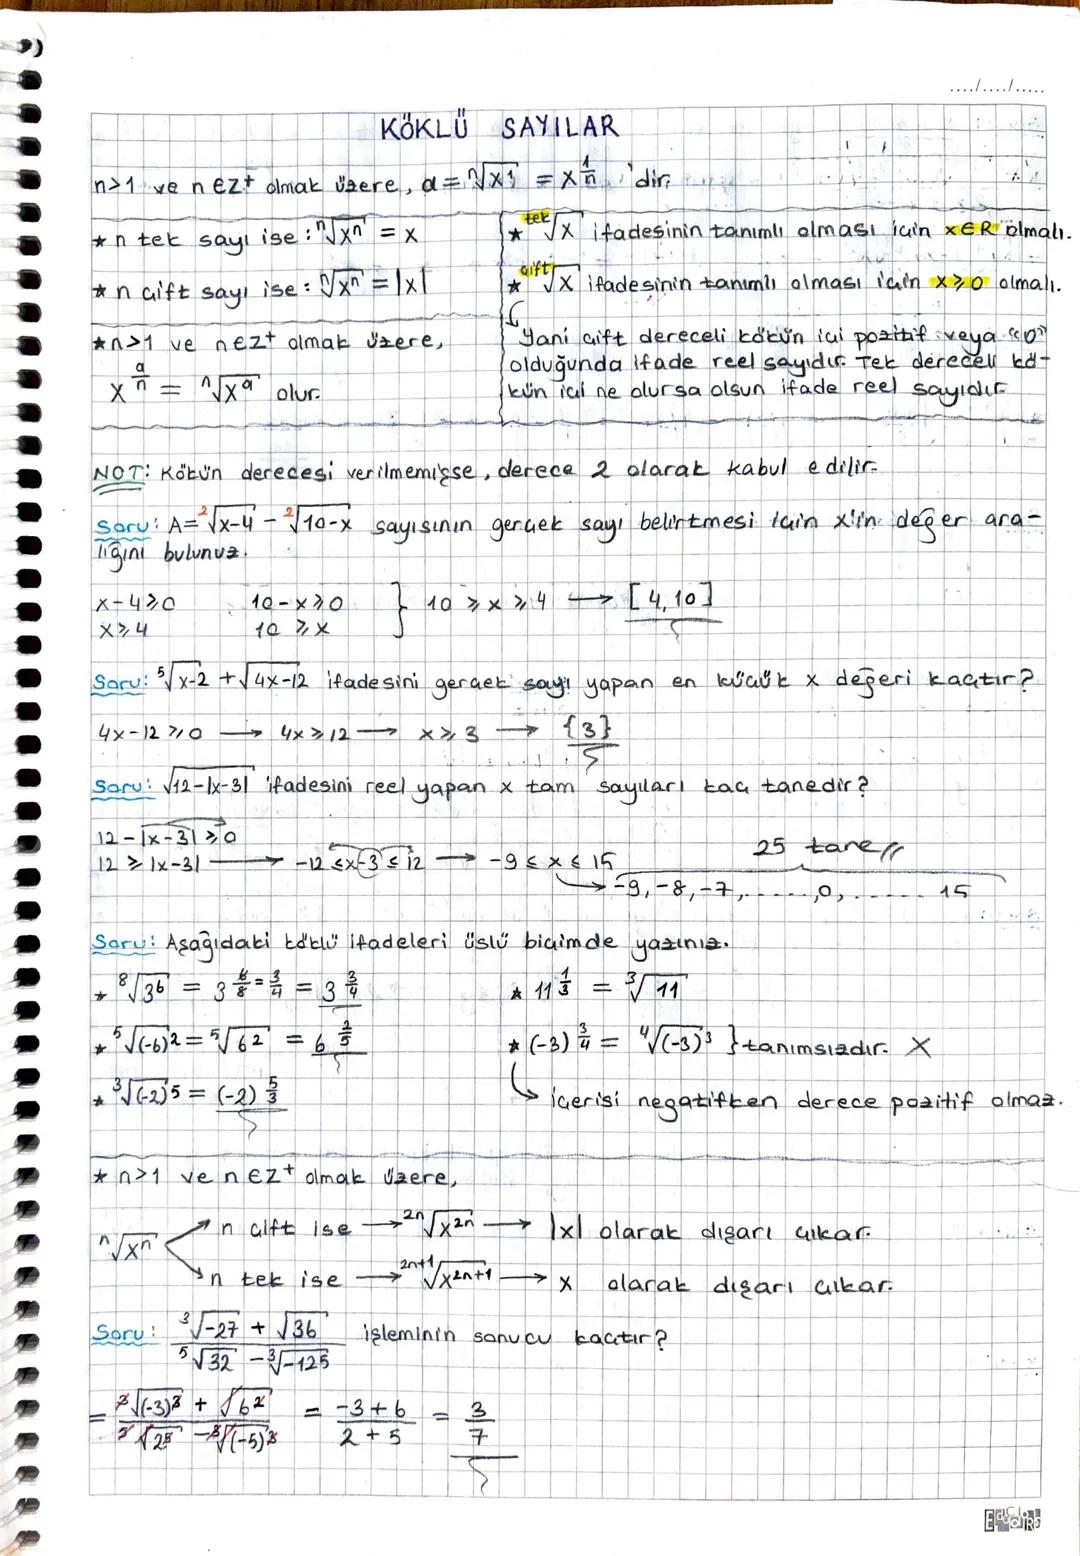 ..../..../.....
KÖKLÜ SAYILAR
n>1 ve n∈Z⁺ olmak üzere, a = ⁿ√x¹ = x^(1/n) 'dir.
* n tek sayı ise: ⁿ√xⁿ = x
* n çift sayı ise: ⁿ√xⁿ = |x|
* n>1 ve n∈Z⁺ olmak üzere,
x^(a/n) = ⁿ√xᵃ olur.
* tek√x ifadesinin tanımlı olması için x∈R olmalı.
* çift√x ifadesinin tanımlı olması için x≥0 olmalı.
Yani çift dereceli kökün içi pozitif veya "0"
olduğunda ifade reel sayıdır. Tek dereceli kö-
kün içi ne olursa olsun ifade reel sayıdır.
NOT: Kökün derecesi verilmemişse, derece 2 olarak kabul edilir.
Soru: A = ²√x-4 - ²√10-x sayısının gerçek sayı belirtmesi için x'in değer ara-
lığını bulunuz.
x-4≥0 10-x≥0 } 10 ≥ x ≥ 4 → [4,10]
x≥4 10 ≥ x
Soru: ⁵√x-2 + √4x-12 ifadesini gerçek sayı yapan en küçük x değeri kaçtır?
4x-12≥0 → 4x≥12 → x≥3 → {3}
Soru: √12-|x-3| ifadesini reel yapan x tam sayıları kaç tanedir?
12-|x-3|≥0
12 ≥ |x-3| → -12 ≤ x-3 ≤ 12 → -9 ≤ x ≤ 15
25 tane
→ -9, -8, -7, ......, 0, ....... 15
Soru: Aşağıdaki köklü ifadeleri üslü biçimde yazınız.
* ⁸√3⁶ = 3^(6/8) = 3/4 = 3^(3/4)
* ⁵√(-6)² = ⁵√6² = 6^(2/5)
* ³√(-2)⁵ = (-2)^(5/3)
* 11^(1/3) = ³√11
* (-3)^(3/4) = ⁴√(-3)³ } tanımsızdır. X
→ içerisi negatifken derece pozitif olmaz.
* n>1 ve n∈Z⁺ olmak üzere,
ⁿ√xⁿ
n çift ise → ²ⁿ√x²ⁿ → |x| olarak dışarı çıkar.
n tek ise → ²ⁿ⁺¹√x²ⁿ⁺¹ → x olarak dışarı çıkar.
Soru: (³√-27 + √36) / (⁵√32 - ³√-125) işleminin sonucu kaçtır?
= (³√(-3)³ + √6²) / (⁵√2⁵ - ³√(-5)³) = (-3+6) / (2+5) = 3/7